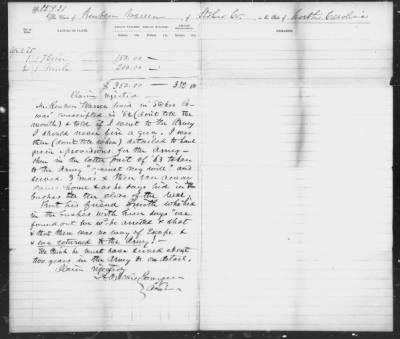 No 7921
The Claim of Reuben Warren, of Stokes Co. in the State of North Carolina
NATURE OF CLAIM.
AMOUNT CLAIMED.
AMOUNT ALLOWED.
AMOUNT DISALLOWED.
REMARKS.
1 1 Horse 150.00
2 1 Mule 200.00
$ 350.00 350 00
Claim rejected
Mr Reuben Warren lived in Stokes Co
was conscripted in '62 (don't tell the
month) & told if I went to the Army
I should never fire a gun. I was
then (don't tell when) detailed to haul
grain & provisions for the Army —
then in the latter part of '63 taken
to the Army "against my will" and
served 3 mos & then ran away
came home & as he says hid in the
bushes till the close of the War.
But his friend Smith who hid
in the bushes with him says "we
found out he'd be arrested & shot
& that there was no way of Escape &
& we returned to the Army"!
We think he must have served about
two years in the Army or on detail.
Claim rejected